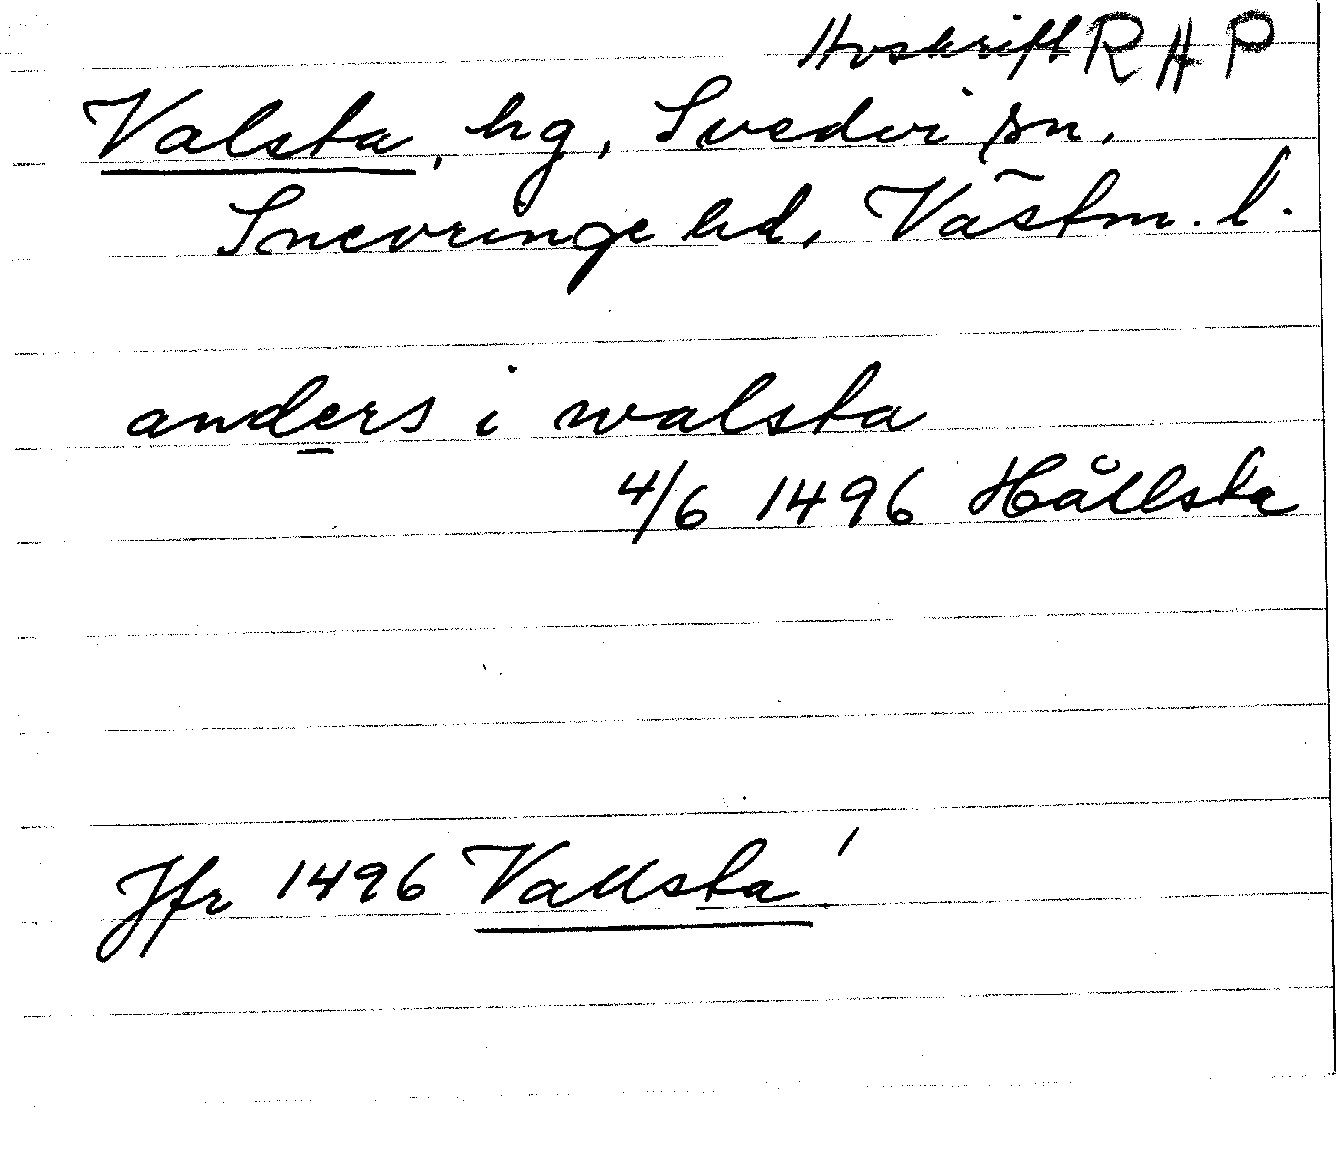 Avskrift RAP
Valsta, hg, Svedvi sn,
Snevringe hd, Västm. l.
anders i walsta
4/6 1496 Hållsta
Jfr 1496 Vallsta!